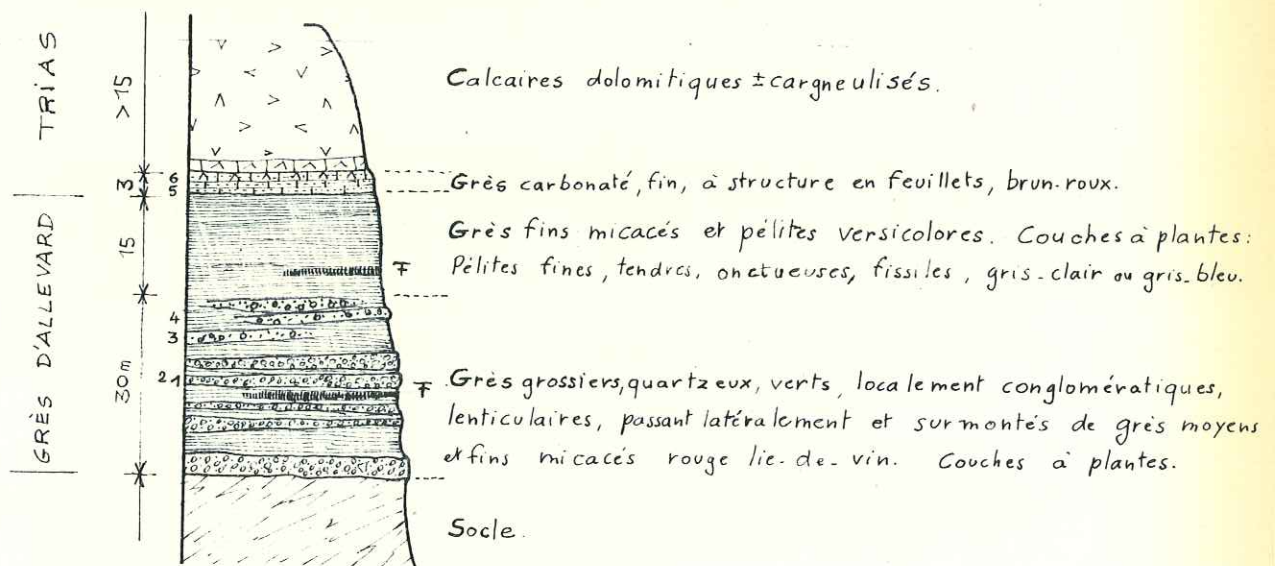 TRIAS
GRÈS D'ALLEVARD
>15
3
15
30m
6
5
4
3
2 1
F
F
Calcaires dolomitiques ± cargneulisés.
Grès carbonaté, fin, à structure en feuillets, brun-roux.
Grès fins micacés et pélites versicolores. Couches à plantes:
Pélites fines, tendres, onctueuses, fissiles, gris-clair ou gris-bleu.
Grès grossiers, quartzeux, verts, localement conglomératiques,
lenticulaires, passant latéralement et surmontés de grès moyens
et fins micacés rouge lie-de-vin. Couches à plantes.
Socle.